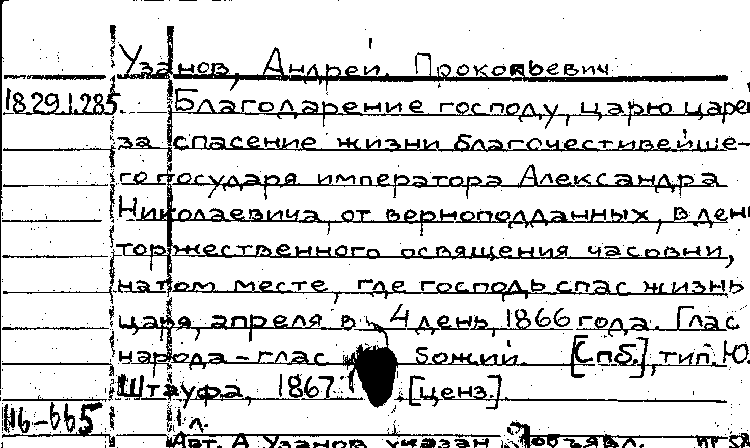 Узанов, Андрей Прокопьевич
18.29.1.285 Благодарение господу, царю царей
за спасение жизни благочестивейше-
го государя императора Александра
Николаевича, от верноподданных, в день
торжественного освящения часовни,
на том месте, где господь спас жизнь
царя, апреля в 4 день, 1866 года. Глас
народа – глас божий. [Спб.], тип. Ю.
Штауфа, 1867. [ценз.].
116-665 1 л.
Авт. А. Узанов указан